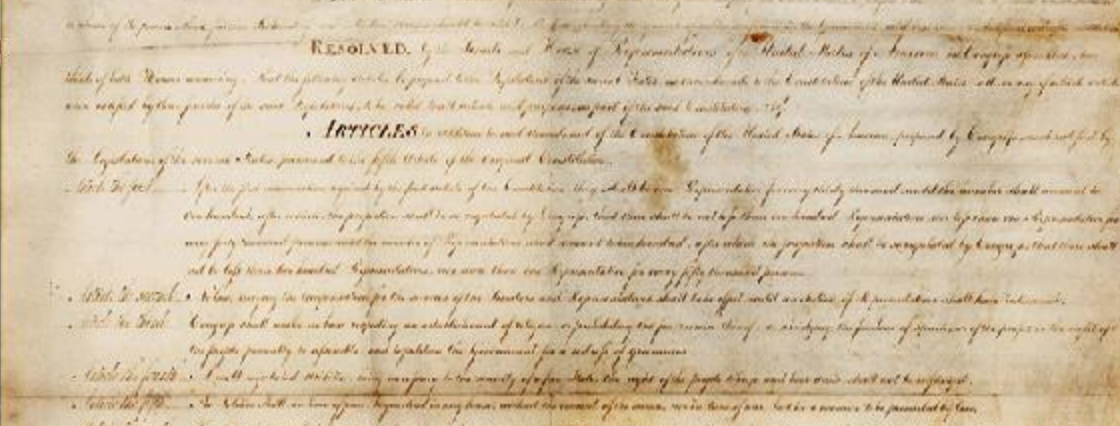 RESOLVED, by the Senate and House of Representatives of the United States of America in Congress assembled, two
thirds of both Houses concurring, that the following Articles be proposed to the Legislatures of the several States, as amendments to the Constitution of the United States, all or any of which articles
when ratified by three fourths of the said Legislatures, to be valid to all intents and purposes as part of the said Constitution, viz.
ARTICLES in addition to, and amendment of the Constitution of the United States of America, proposed by Congress and ratified by
the Legislatures of the several States, pursuant to the fifth Article of the original Constitution.
Article the first After the first enumeration required by the first article of the Constitution, there shall be one Representative for every thirty thousand, until the number shall amount to
one hundred, after which the proportion shall be so regulated by Congress, that there shall be not less than one hundred Representatives, nor less than one Representative for
every forty thousand persons, until the number of Representatives shall amount to two hundred; after which the proportion shall be so regulated by Congress, that there shall
not be less than two hundred Representatives, nor more than one Representative for every fifty thousand persons.
Article the second No law, varying the compensation for the services of the Senators and Representatives, shall take effect, until an election of Representatives shall have intervened.
Article the third Congress shall make no law respecting an establishment of religion, or prohibiting the free exercise thereof; or abridging the freedom of speech, or of the press; or the right of
the people peaceably to assemble, and to petition the Government for a redress of grievances.
Article the fourth A well regulated Militia, being necessary to the security of a free State, the right of the people to keep and bear Arms, shall not be infringed.
Article the fifth No Soldier shall, in time of peace be quartered in any house, without the consent of the owner, nor in time of war, but in a manner to be prescribed by law.